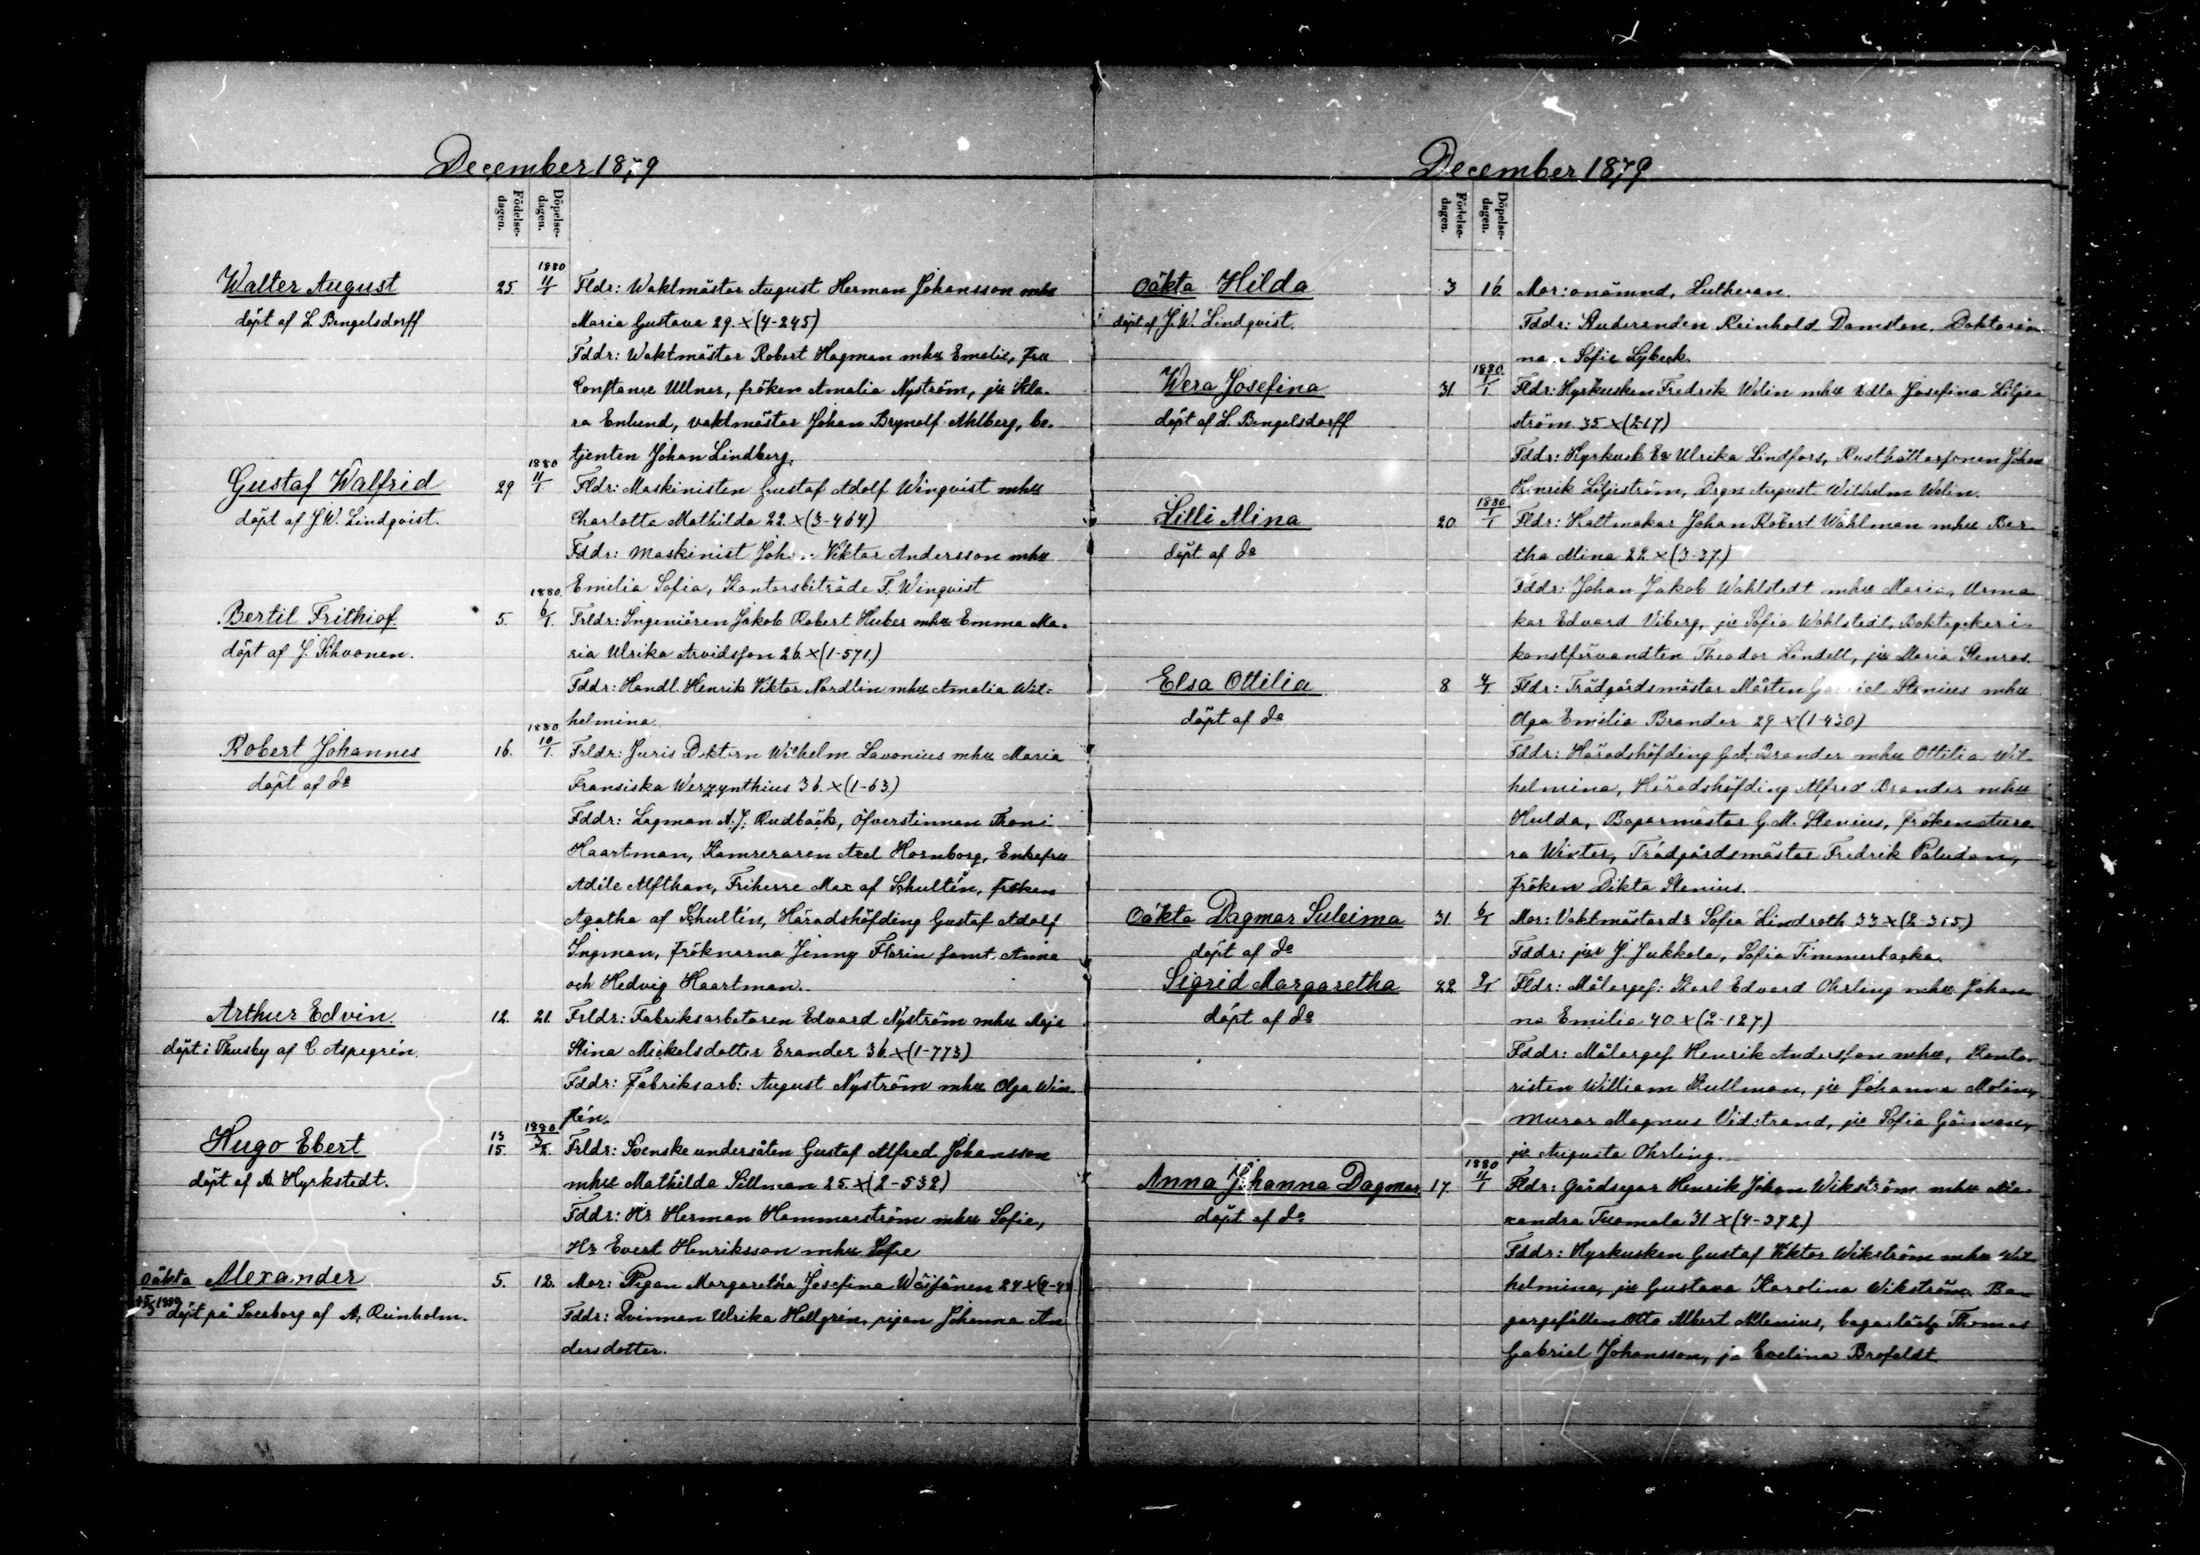 December 1879
Födelse-
dagen.
Döpelse-
dagen.
Walter August
döpt af L. Bengelsdorff
25.
1880
11/1
Fldr: Waktmästar August Herman Johansson mhu
Maria Gustava 29. x (4-245)
Fddr: Waktmästar Robert Hagman mhu Emelie, fru
Constance Ullner, fröken Amalia Nyström, ju Kla-
ra Enlund, vaktmästar Johan Brynolf Ahlberg, be-
tjenten Johan Lindberg.
Gustaf Walfrid
döpt af J. W. Lindqvist.
29
1880
11/1
Fldr: Maskinisten Gustaf Adolf Winqvist mhu
Charlotta Mathilda 22. x (3-464)
Fddr: Maskinist Joh. Viktor Andersson mhu
Emilia Sofia, Kontorsbiträde F. Winqvist
Bertil Frithiof
döpt af J. Sihvonen.
5.
1880.
6/1.
Frldr: Ingeniören Jakob Robert Huber mhu Emma Ma-
ria Ulrika Arvidsson 26 x (1-571.)
Fddr: Handl. Henrik Viktor Nordlin mhu Amalia Wil-
helmina
Robert Johannes
döpt af do
16.
1880
10/1.
Frldr: Juris Doktorn Wilhelm Lavonius mhu Maria
Fransiska Werzynthius 36. x (1-63.)
Fddr: Lagman A. J. Rudbäck, Öfverstinnan Thoni
Haartman, Kamreraren Axel Hornborg, Enkefru
Adile Alfthan, Friherre Max af Schultén, fröken
Agatha af Schultén, Häradshöfding Gustaf Adolf
Ingman, fröknarna Jenny Florin samt Anna
och Hedvig Haartman.
Arthur Edvin.
döpt i Thusby af C. Aspegrén.
12.
21.
Frldr: Fabriksarbetaren Edvard Nyström mhu Maja
Stina Mickelsdotter Erander 36. x (1-773)
Fddr: Fabriksarb: August Nyström mhu Olga Win-
stén.
Hugo Ebert
döpt af A. Hyrkstedt.
13
15.
1880
Frldr: Svenske undersåten Gustaf Alfred Johansson
mhu Mathilda Sillman 25. x (2-532)
Fddr: Hr Herman Hammarström mhu Sofie,
Hr Evert Henriksson mhu Sofie
oäkta Alexander
döpt på Sveaborg af A. Reinholm.
5.
12.
Mor: Pigan Margaretha Josefina Wäijänen 24 x
Fddr: Qvinnan Ulrika Hellgrén, pigan Johanna An
dersdotter.
December 1879
Födelse-
dagen.
Döpelse-
dagen.
oäkta Hilda
döpt af J. W. Lindqvist.
3
16
Mor: onämnd, Lutheran.
Fddr: Studeranden Reinhold Damsten, Doktorin-
na Sofie Lybeck.
Wera Josefina
döpt af L. Bengelsdorff
31
1880.
Fldr: Hyrkusken Fredrik Welin mhu Edla Josefina Liljes-
ström 35 x (2-17)
Fddr: Hyrkusk Ulrika Lindfors, Rusthållarsonen Johan
Henrik Liljeström, August Wilhelm Welin.
Lilli Alina
döpt af do
20
1880
1/1
Fldr: Hattmakar Johan Robert Wahlman mhu Ber-
tha Alina 22 x (3-37.)
Fddr: Johan Jakob Wahlstedt mhu Maria, Urma-
kar Edvard Viberg, ju Sofia Wahlstedt, Boktryckeri-
konstförvandten Theodor Lindell, ju Maria Stenros.
Elsa Ottilia
döpt af do
8
4/1
Fldr: Trädgårdsmästar Mårten Gabriel Stenius mhu
Olga Emilia Brander 29 x (1-430)
Fddr: Häradshöfding G. A. Brander mhu Ottilia Wil-
helmina, Häradshöfding Alfred Brander mhu
Hulda, Bagarmästar G. M. Stenius, fröken Auro-
ra Winter, Trädgårdsmästar Fredrik Paludan,
fröken Dikta Stenius.
Oäkta Dagmar Suleima
döpt af do
31
6/1
Mor: Vaktmästardr Sofia Lindroth 33 x (2-315.)
Fddr: ju J. Jukkola, Sofia Timmerbacka.
Sigrid Margaretha
döpt af do
22
9/1
Fldr: Målargef: Karl Edvard Ohrling mhu Johan-
na Emilia 40. x (2-127.)
Fddr: Målargef. Henrik Andersson mhu, Konto-
risten William Kullman, ju Johanna Molin,
murar Magnus Vidstrand, ju Sofia
ju Augusta Ohrling.
Anna Johanna Dagmar
döpt af do
17.
1880
11/1
Fldr: Gårdsegar Henrik Johan Wikström mhu Ale-
xandra Tuomala 31 x (4-272.)
Fddr: Hyrkusken Gustaf Viktor Wikström mhu Wil-
helmina, ju Gustava Karolina Wikström, Ba-
gargesällen Otto Albert Alenius, bagarlärl. Thomas
Gabriel Johansson, ju Evelina Brofeldt.